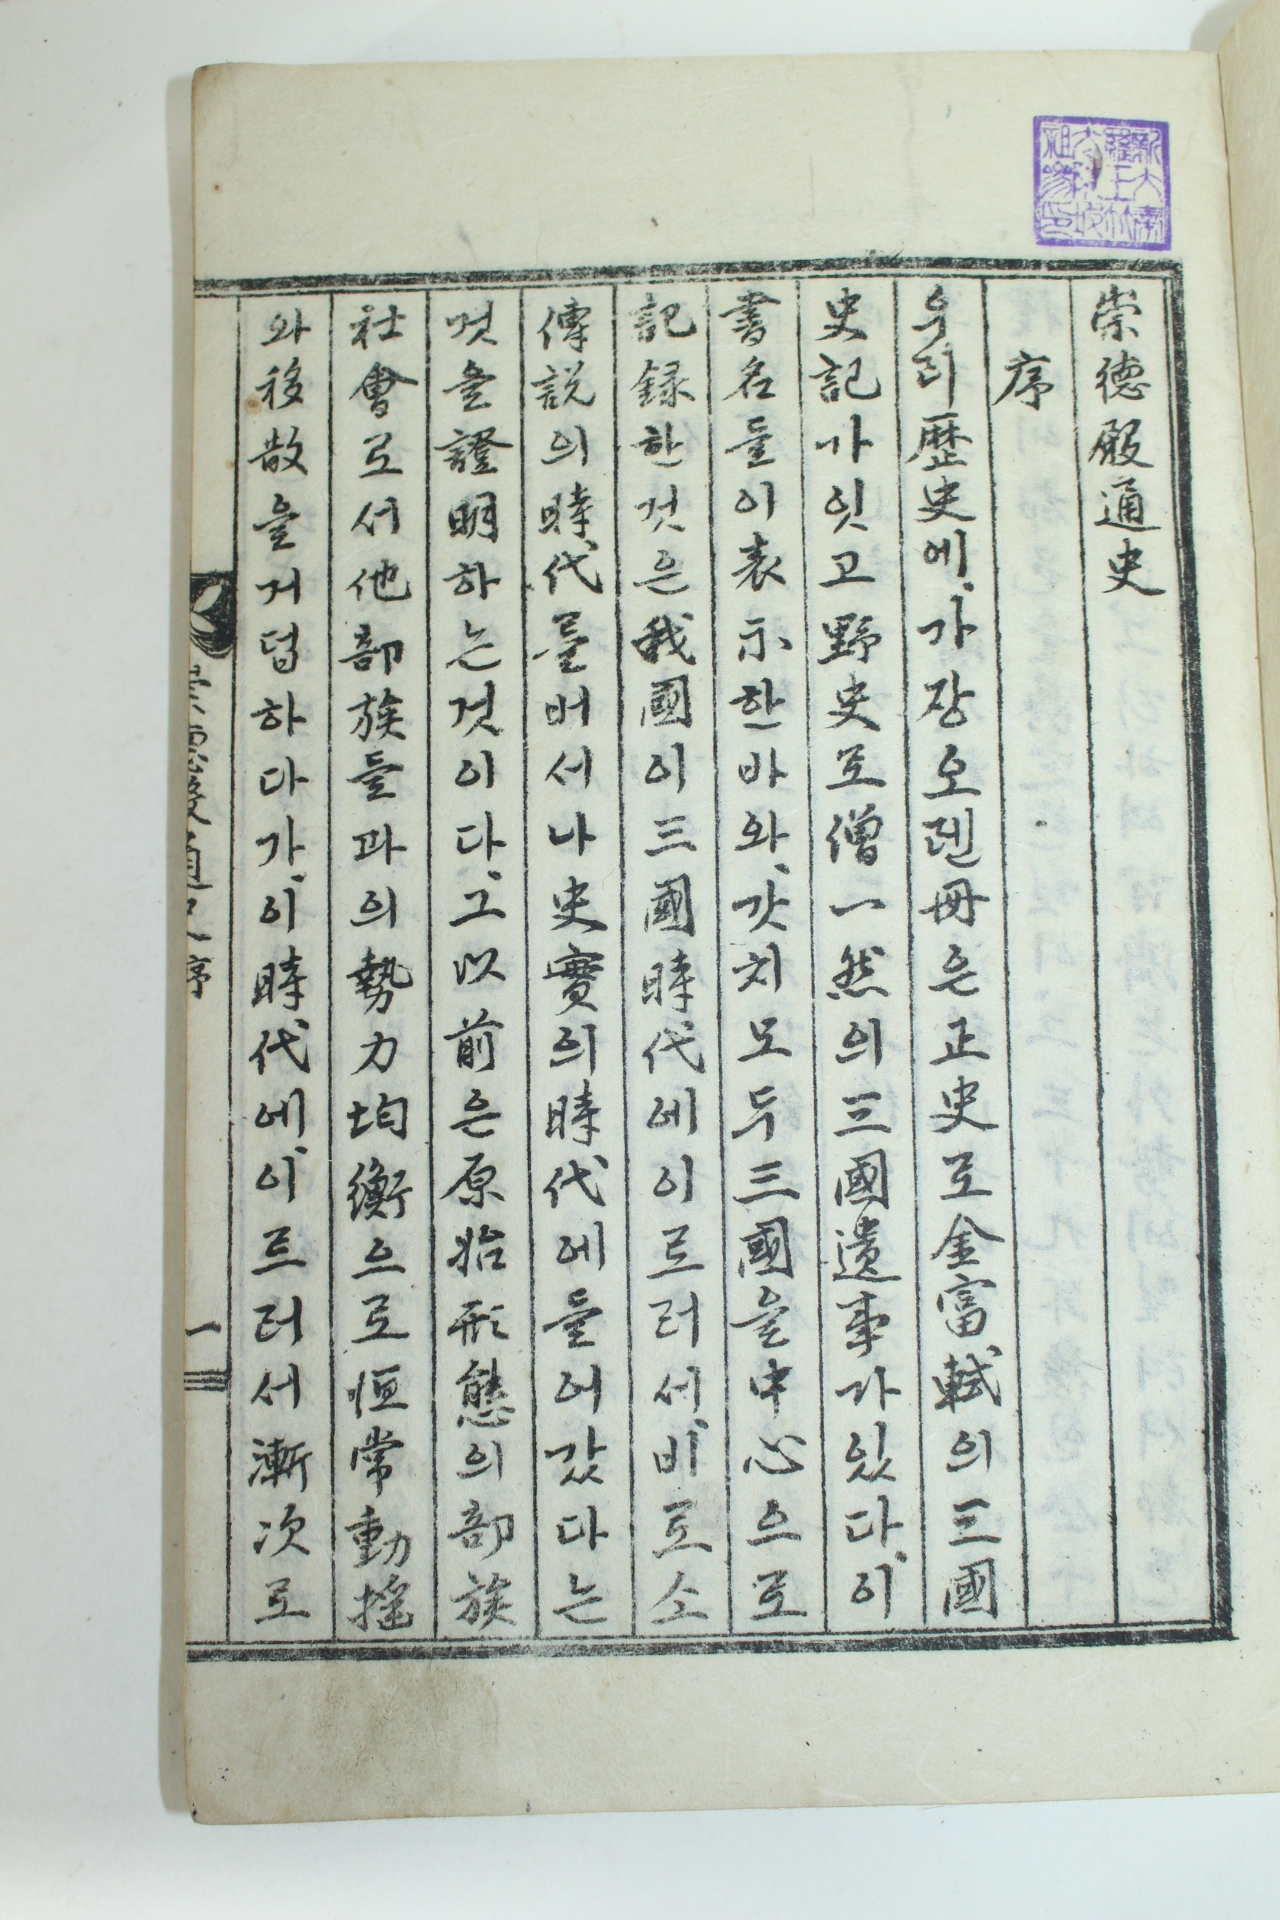 崇德殿通史
序
우리歷史에、가장오랜冊은正史로金富軾의三國
史記가잇고野史로僧一然의三國遺事가있다、이
書名들이表示한바와、갓치모두三國을中心으로
記録한것은我國이三國時代에이르러서、비로소
傳説의時代를버서나史實의時代에들어갔다는
것을證明하는것이다、그以前은原始形態의部族
社會로서他部族들과의勢力均衡으로恒常動搖
와移散을거듭하다가、이時代에、이르러서漸次로
序
一